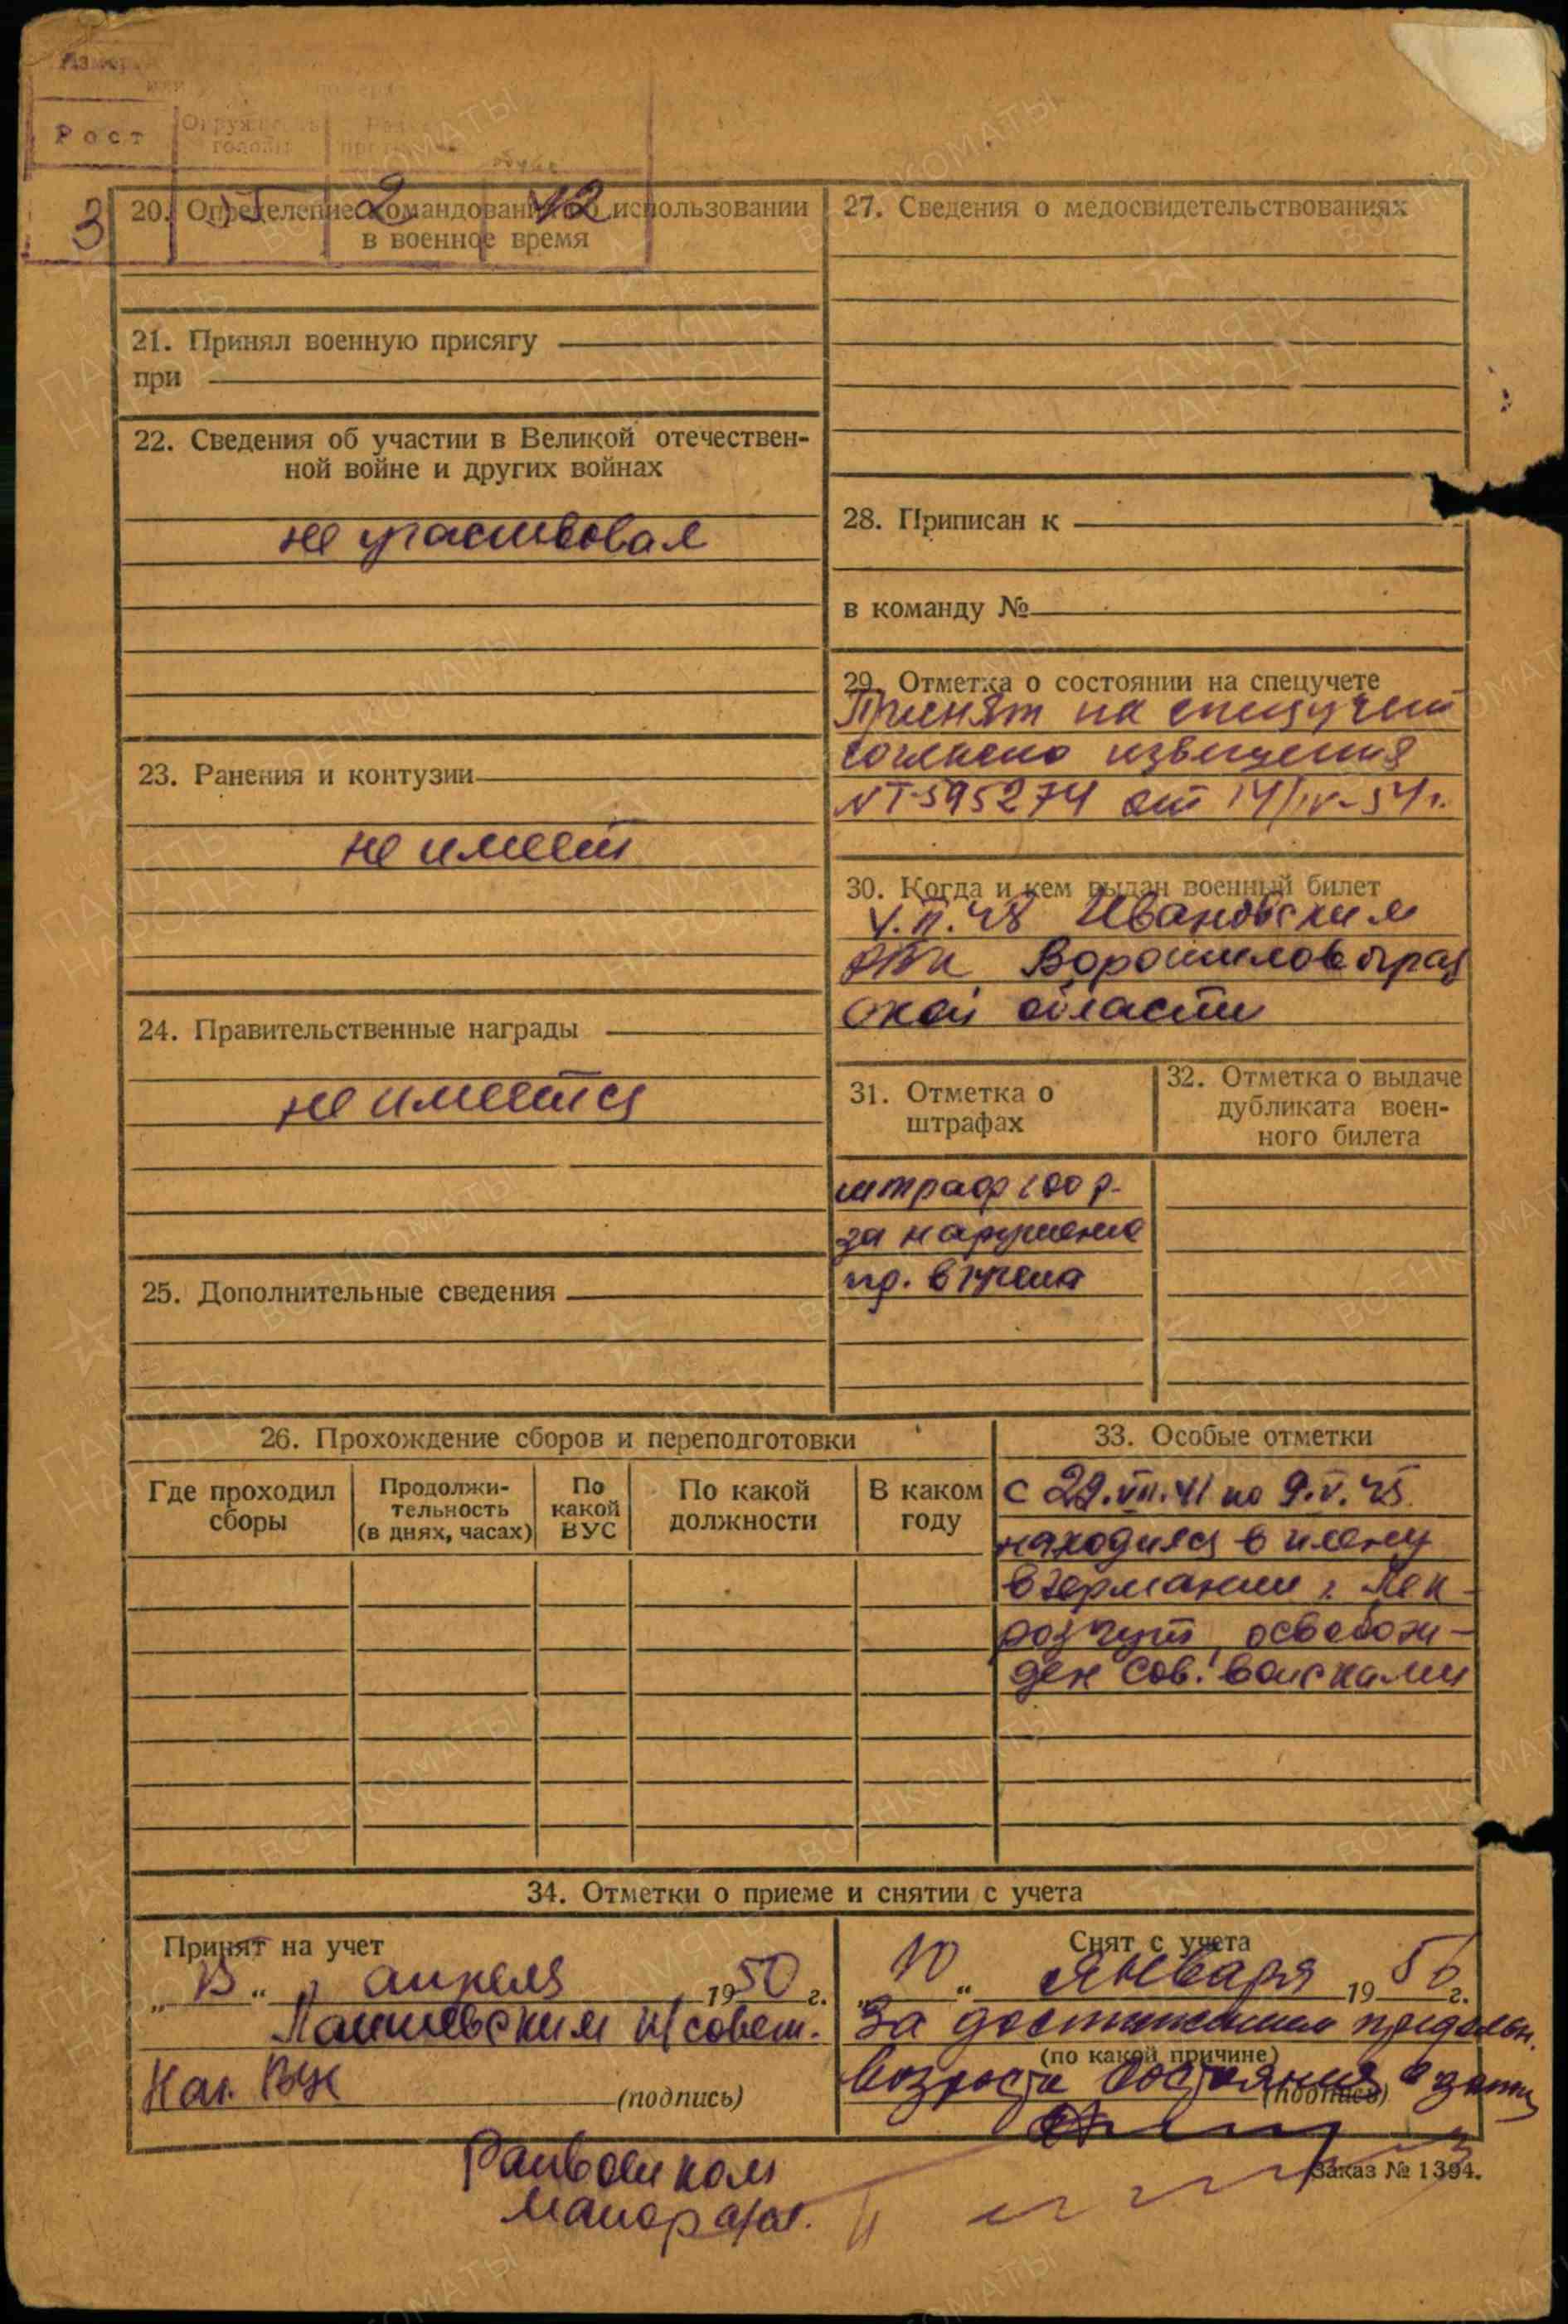 Рост
Окруж
головы
3
2
42
20. Определение командования об использовании
в военное время
21. Принял военную присягу
при
22. Сведения об участии в Великой отечествен-
ной войне и других войнах
не участвовал
23. Ранения и контузии
не имеет
24. Правительственные награды
не имеется
25. Дополнительные сведения
27. Сведения о медосвидетельствованиях
28. Приписан к
в команду №
29. Отметка о состоянии на спецучете
Принят на спецучет
согласно извещения
NT-595274 от 14/IV-54г.
30. Когда и кем выдан военный билет
Ивановским
РВК Ворошиловоград
ской области
31. Отметка о
штрафах
штраф 100 р.
за нарушение
пр. в/учета
32. Отметка о выдаче
дубликата воен-
ного билета
26. Прохождение сборов и переподготовки
Где проходил
сборы
Продолжи-
тельность
(в днях, часах)
По
какой
ВУС
По какой
должности
В каком
году
33. Особые отметки
с 29.VII.41 по 9.V.45.
находился в плену
в Германии г.
освобож-
ден Сов. войсками
34. Отметки о приеме и снятии с учета
Принят на учет
„15“ апреля 1950 г.
с/совет.
(подпись)
Снят с учета
„10“ Января 1956 г.
За достижением предельн.
(по какой причине)
возраста состояния в запасе
(подпись)
Райвоенком
Майор а/сл.
Заказ № 1394.
ПАМЯТЬ
НАРОДА
ВОЕНКОМАТЫ